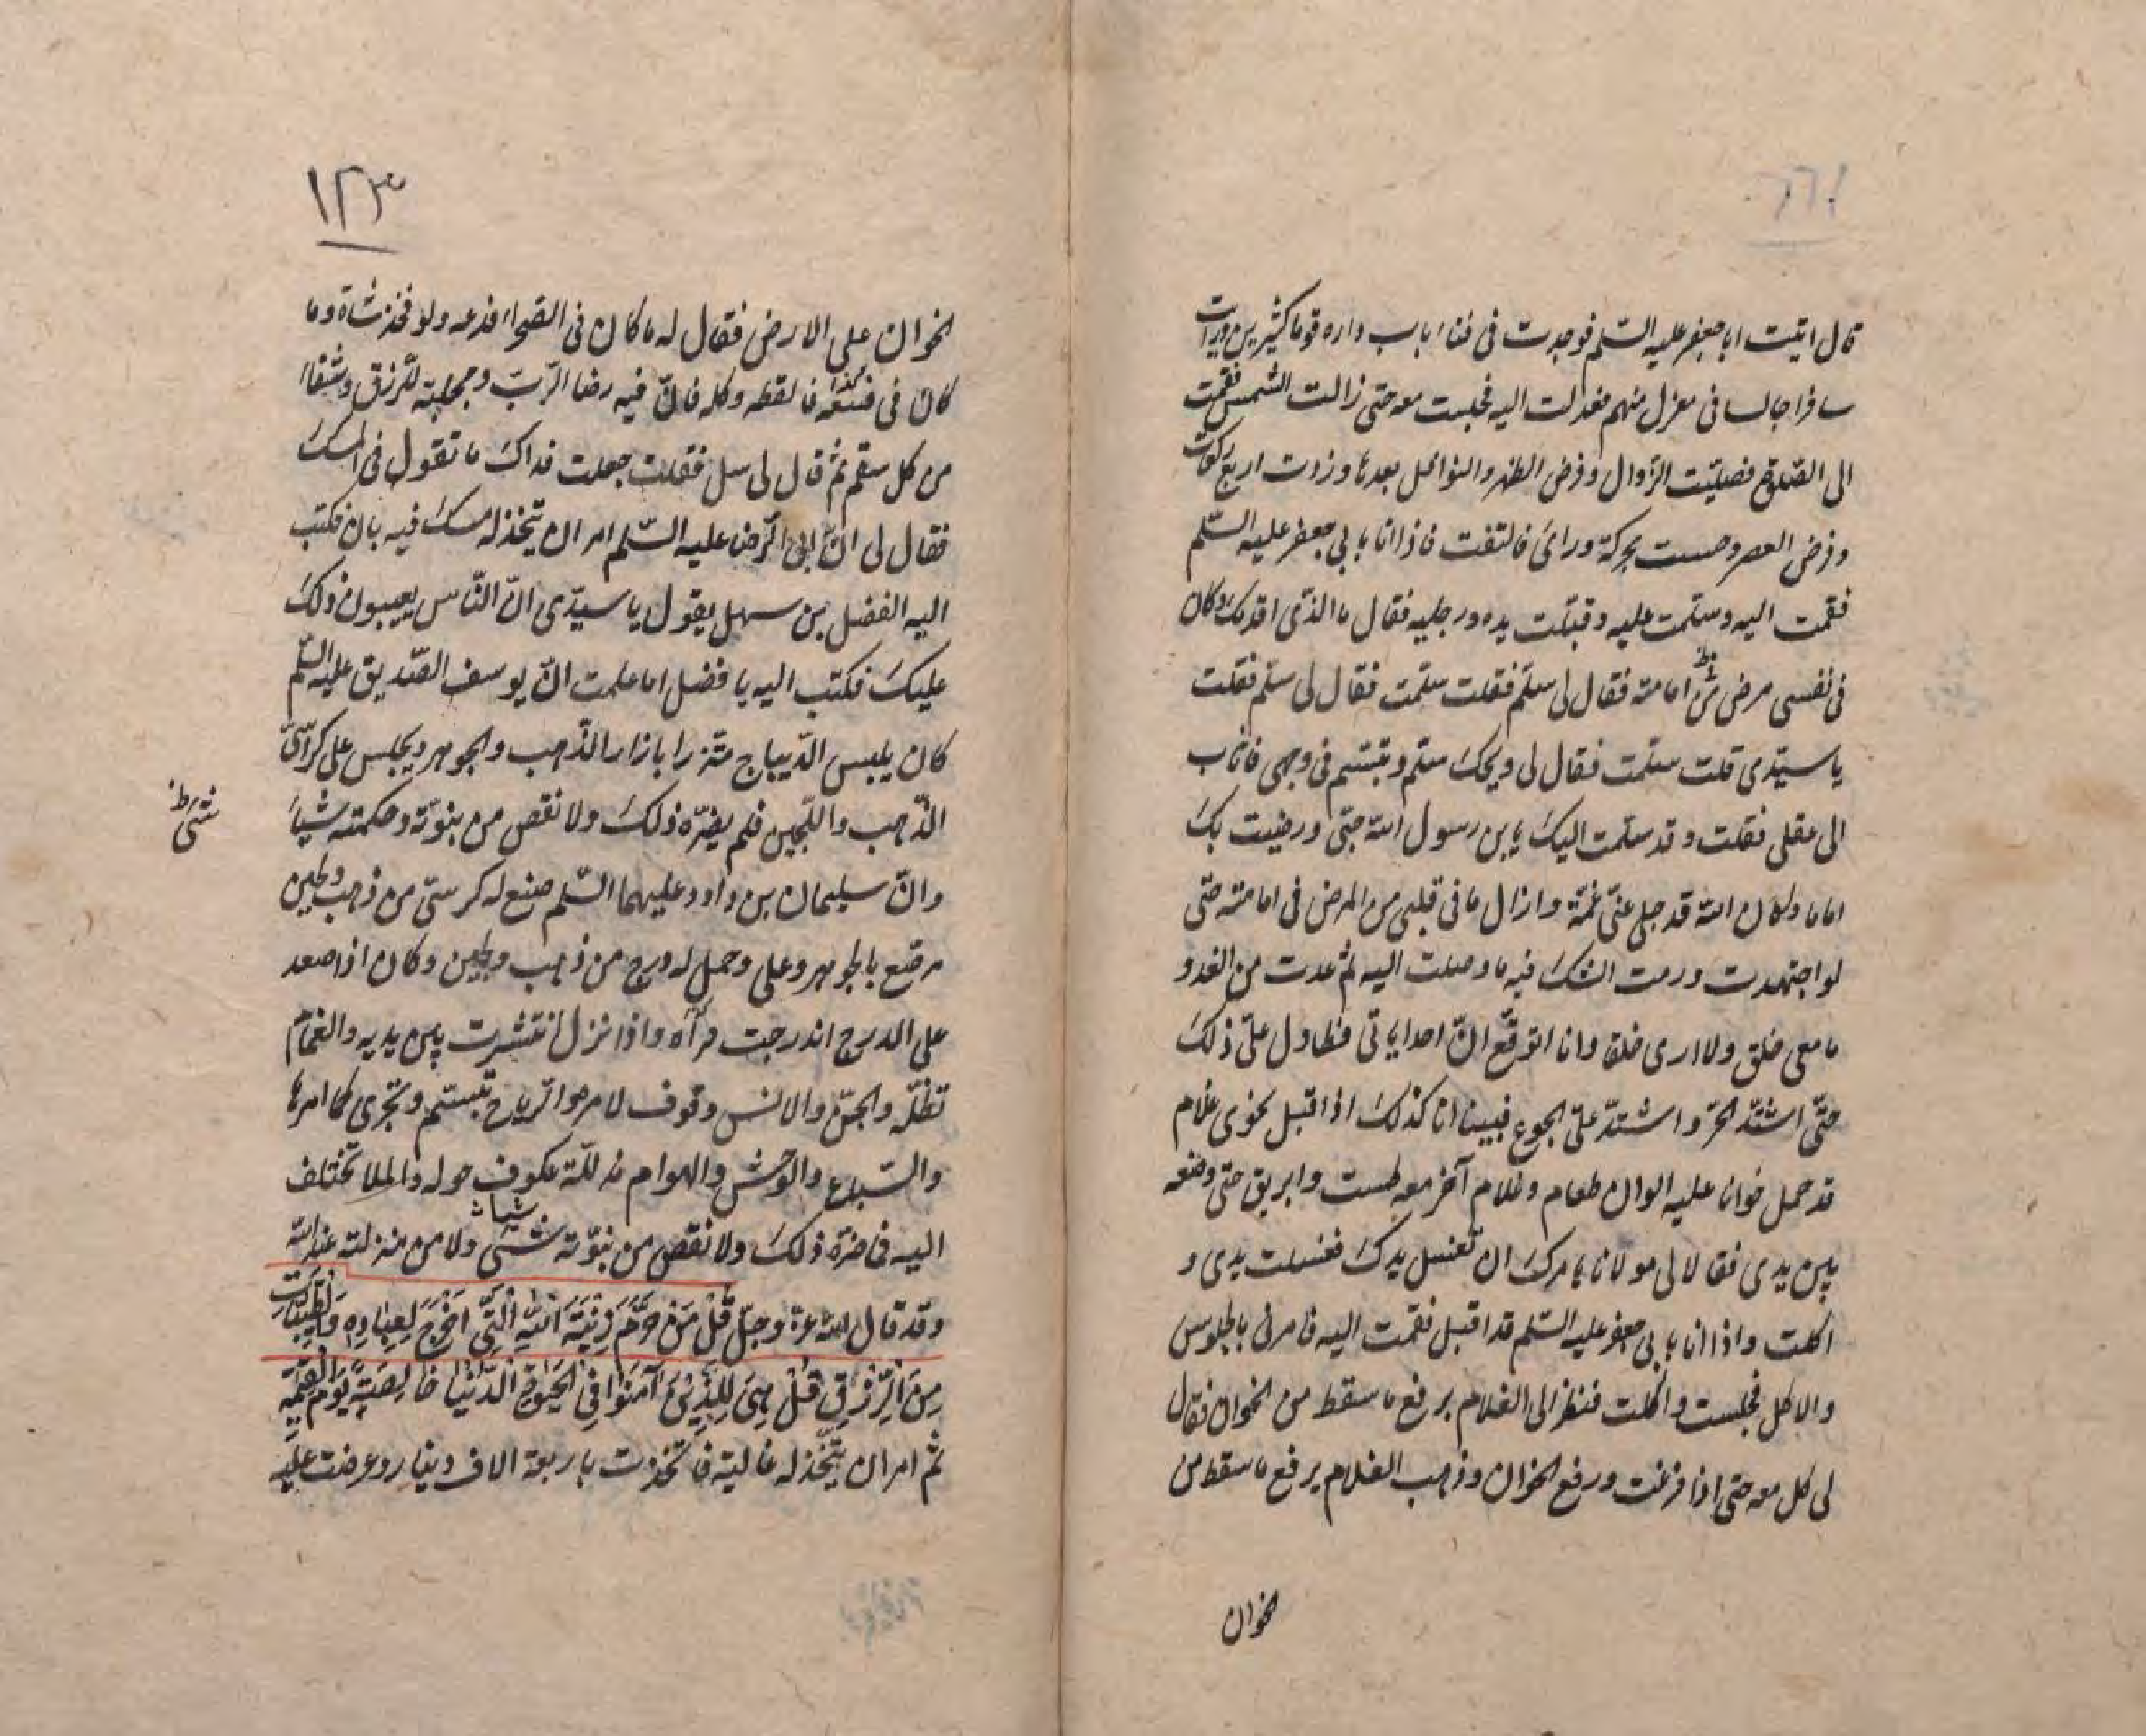 قال اتيت ابا جعفر عليه السّلم فوجدت فى فناء باب داره قوما كثيرين ورايت
سافرا جالسا فى معزل منهم فعدلت اليه فجلست معه حتى زالت الشمس فقمت
الى الصّلوة فصلّيت الزّوال وفرض الظهر والنوافل بعدها وزدت اربع ركعات
وفرض العصر وحسست بحركة ورائى فالتفت فاذا انا بابى جعفر عليه السّلم
فقمت اليه وسلّمت عليه وقبّلت يده ورجليه فقال ما الذّى اقدمك وكان
فى نفسى مرض من امامته فقال لى سلّم فقلت سلّمت فقال لى سلّم فقلت
يا سيّدى قلت سلّمت فقال لى ويحك سلّم وتبسّم فى وجهى فاناب
الى عقلى فقلت وقد سلّمت اليك يابن رسول الله حتى ورضيت بك
اماما وكان الله قد جلى عنّى غمّة وازال ما فى قلبى من المرض فى امامته حتّى
لو اجتهدت ورمت الشك فيه ما وصلت اليه ثم عدت من الغد و
ما معى خلق ولا ارى خلقا وانا اتوقّع انّ احدا ياتى فتطاول علىّ ذلك
حتّى اشتدّ الحرّ واشتدّ علىّ الجوع فبينا انا كذلك اذا قبل نحوى غلام
قد حمل خوانا عليه الوان طعام وغلام آخر معه طست وابريق حتى وضعه
بين يدى فقالا لى مولانا يامرك ان تغسل يدك فغسلت يدى و
اكلت واذا انا بابى جعفر عليه السّلم قد اقبل فقمت اليه فامرنى بالجلوس
والاكل فجلست واكلت فنظر الى الغلام يرفع ما سقط من الخوان فقال
لى كل معه حتى اذا فرغت ورفع الخوان وذهب الغلام يرفع ما سقط من
لخوان
١٢٣
الخوان على الارض فقال له ما كان فى الصّحراء فدعه ولو فخذ شاة وما
كان فى فالقطه وكله فانّ فيه رضا الرّبّ ومجلبة للرّزق وشفاء
من كل سقم ثم قال لى سل فقلت جعلت فداك ما تقول فى المسك
فقال لى انّ ابى الرّضا عليه السّلم امر ان يتّخذ له مسك فيه بان فكتب
اليه الفضل بن سهل يقول يا سيدّى انّ النّاس يعيبون ذلك
عليك فكتب اليه يا فضل اما علمت انّ يوسف الصّديق عليه السّلم
كان يلبس الدّيباج متزرا بازار الذّهب والجوهر ويجلس على كراسىّ
الذّهب واللّجين فلم يضرّه ذلك ولا نقص من نبوّته وحكمته شياء
شئ ط
وانّ سليمان بن داود عليهما السّلم صنع له كرسىّ من ذهب ولجين
مرصّع بالجوهر وعلى وحمل له درج من ذهب ولجين وكان اذا صعد
على الدرج اندرجت وراه واذا نزل انتشرت بين يديه والغمام
تظلّه والجنّ والانس وقوف لامره والرّياح تبسّم وتجرى كما امرها
والسّباع والوحش والهوام مذلّلة عكوف حوله والملا تختلف
اليه فما ضرّه ذلك ولا نقص من نبوّته شئ ولا من منزلته عند الله
وقد قال الله عزّ وجلّ قُلْ مَنْ حَرَّمَ زِينَةَ اللهِ الَّتِى اَخْرَجَ لِعِبادِهِ وَالطَّيِّباتِ
مِنَ الرِّزْقِ قُلْ هِىَ لِلَّذِينَ آمَنُوا فِى الْحَيوةِ الدُّنْيا خالِصَةً يَوْمَ الْقِيمَةِ
ثم امر ان يتّخذ له غالية فاتّخذت باربعة الاف دينار وعرضت عليه